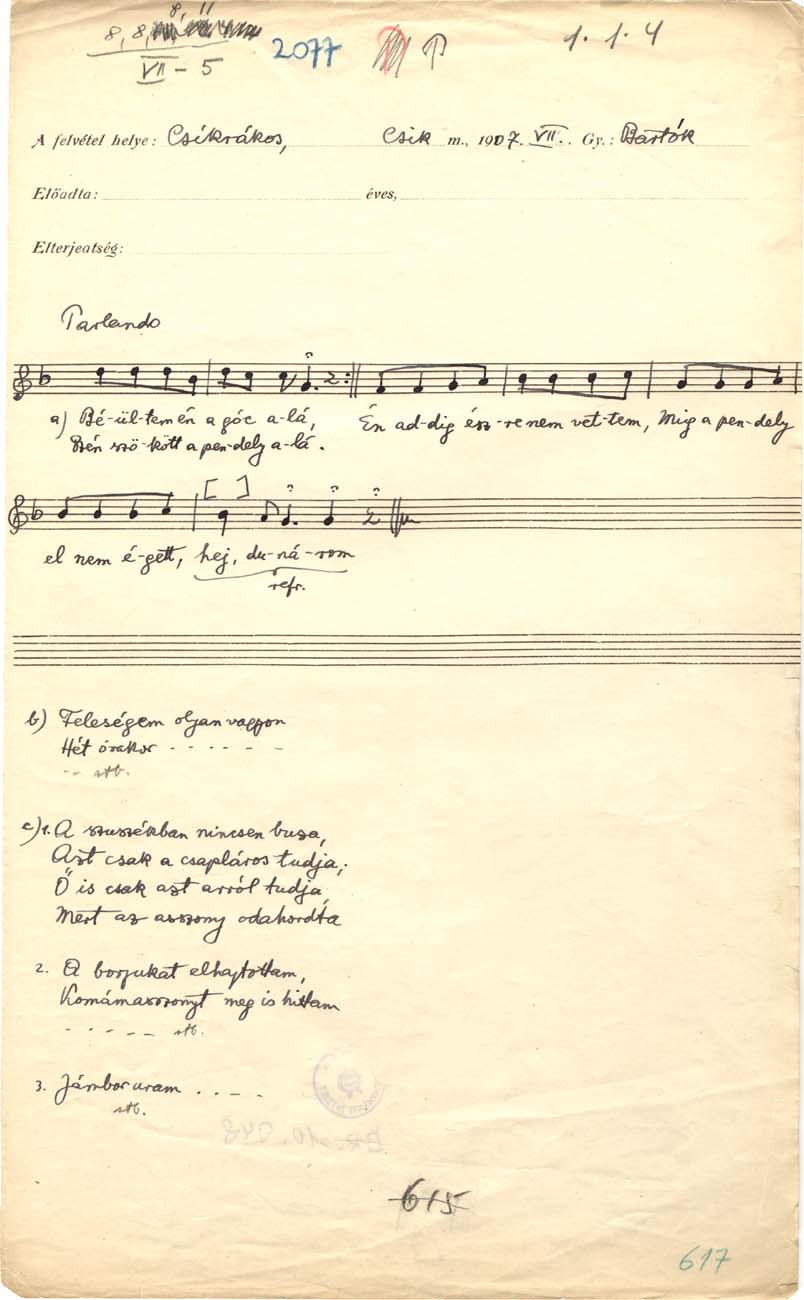 8, 11
8, 8,
VII - 5
2077
1. 1. 4
A felvétel helye: Csíkrákos, Csik m., 1907. VII. Gy.: Bartók
Előadta: éves,
Elterjedtség:
Parlando
a) Bé-ül-tem én a góc a-lá, Én ad-dig ész-re nem vet-tem, Mig a pen-dely
Szén szö-kött a pen-dely a-lá.
el nem é-gett, hej, du-ná-rom
refr.
b) Feleségem oljan vagyon
Hét órakor - - - - - -
- - stb.
c) 1. A szuszékban nincsen buza,
Azt csak a csapláros tudja;
Ő is csak azt arról tudja,
Mert az asszony odahordta
2. A borjukat elhajtottam,
Komámasszonyt meg is hittam
- - - - - stb.
3. Jámbor uram . . - -
stb.
615
617